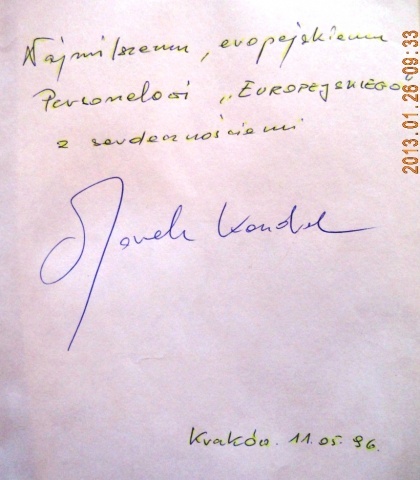 Najmilszemu, europejskiemu
Personelowi „EUROPEJSKIEGO"
z serdecznościami
Marek Kondrat
Kraków. 11.05.96.
2013.01.26 09:33